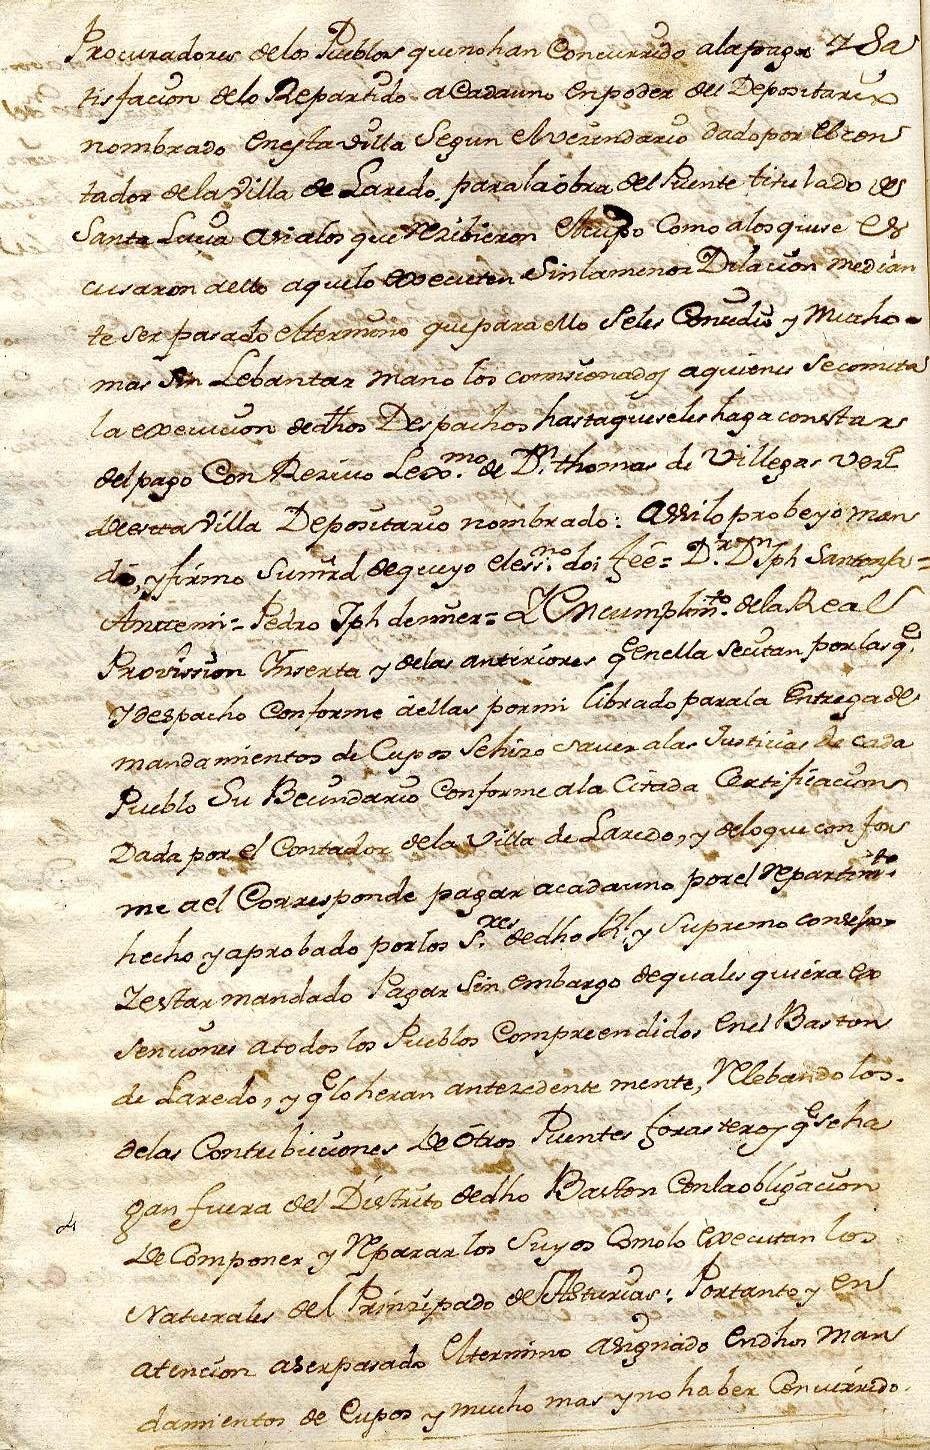 Procuradores de los Pueblos que no han Concurrido a la paga y Sa
tisfacion de lo Repartido a Cada uno en poder del Depositario
nombrado en esta Villa Segun el vecundario dado por el con
tador de la Villa de Laredo, para la obra del Puente titulado de
Santa Lucia asi a los que Rezibieron el cupo Como a los que se es
cusaron dello a que lo executen Sin la menor Dilacion median
te ser pasado el termino que para ello se les Conzedio y mucho
mas sin Lebantar mano los comisionados a quienes se cometa
la execucion de dhos Despachos hasta que se les haga constar
del pago Con Recivo Lexmo. de Dn. thomas de Villegas vezo.
de esta Villa Depositario nombrado: Assi lo probeyo man
do, y firmo Su mrd de que yo el essno. doi feé = Dr. Dn. Jph Santona =
Ante mi = Pedro Jph de = Y En cumplimto. de la Real
Provission Ynserta y de las anteriores qe en ella se citan por las qe.
y despacho Conforme a ellas por mi librado para la Entrega de
mandamientos de Cupos se hizo saver a las Justicias de cada
Pueblo Su Becundario Conforme a la Citada Certificacion
Dada por el Contador de la Villa de Laredo, y de lo que con for
me a el Corresponde pagar a cada uno por el Repartimto.
hecho y aprobado por los Sres. de dho Rl. y Supremo consejo
y estar mandado Pagar sin embargo de quales quiera ex
senciones a todos los Pueblos Compreendidos en el Baston
de Laredo, y qe lo heran antezedente mente, Relebandolos.
de las Contribuciones de ótros Puentes forasteros qe se ha
gan fuera del Distrito de dho Baston Con la obligacion
de Componer y Reparar los Suyos Como lo executan los
Naturales del Prinzipado de Asturias: Portanto y en
atencion a ser pasado el termino asignado en dhos man
damientos de Cupos y mucho mas y no haber Concurrido.